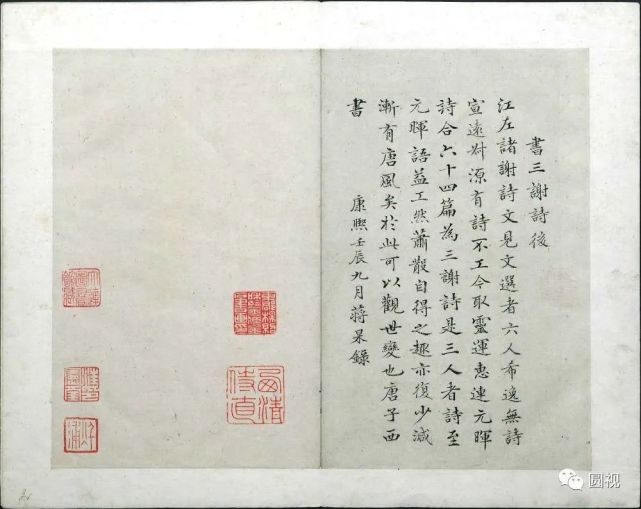 書三謝詩後
江左諸謝詩文見文選者六人希逸無詩
宣遠叔源有詩不工今取靈運惠連元暉
詩合六十四篇為三謝詩是三人者詩至
元暉語益工然蕭散自得之趣亦復少減
漸有唐風矣於此可以觀世變也唐子西
書
康熙壬辰九月蔣杲錄
圆视